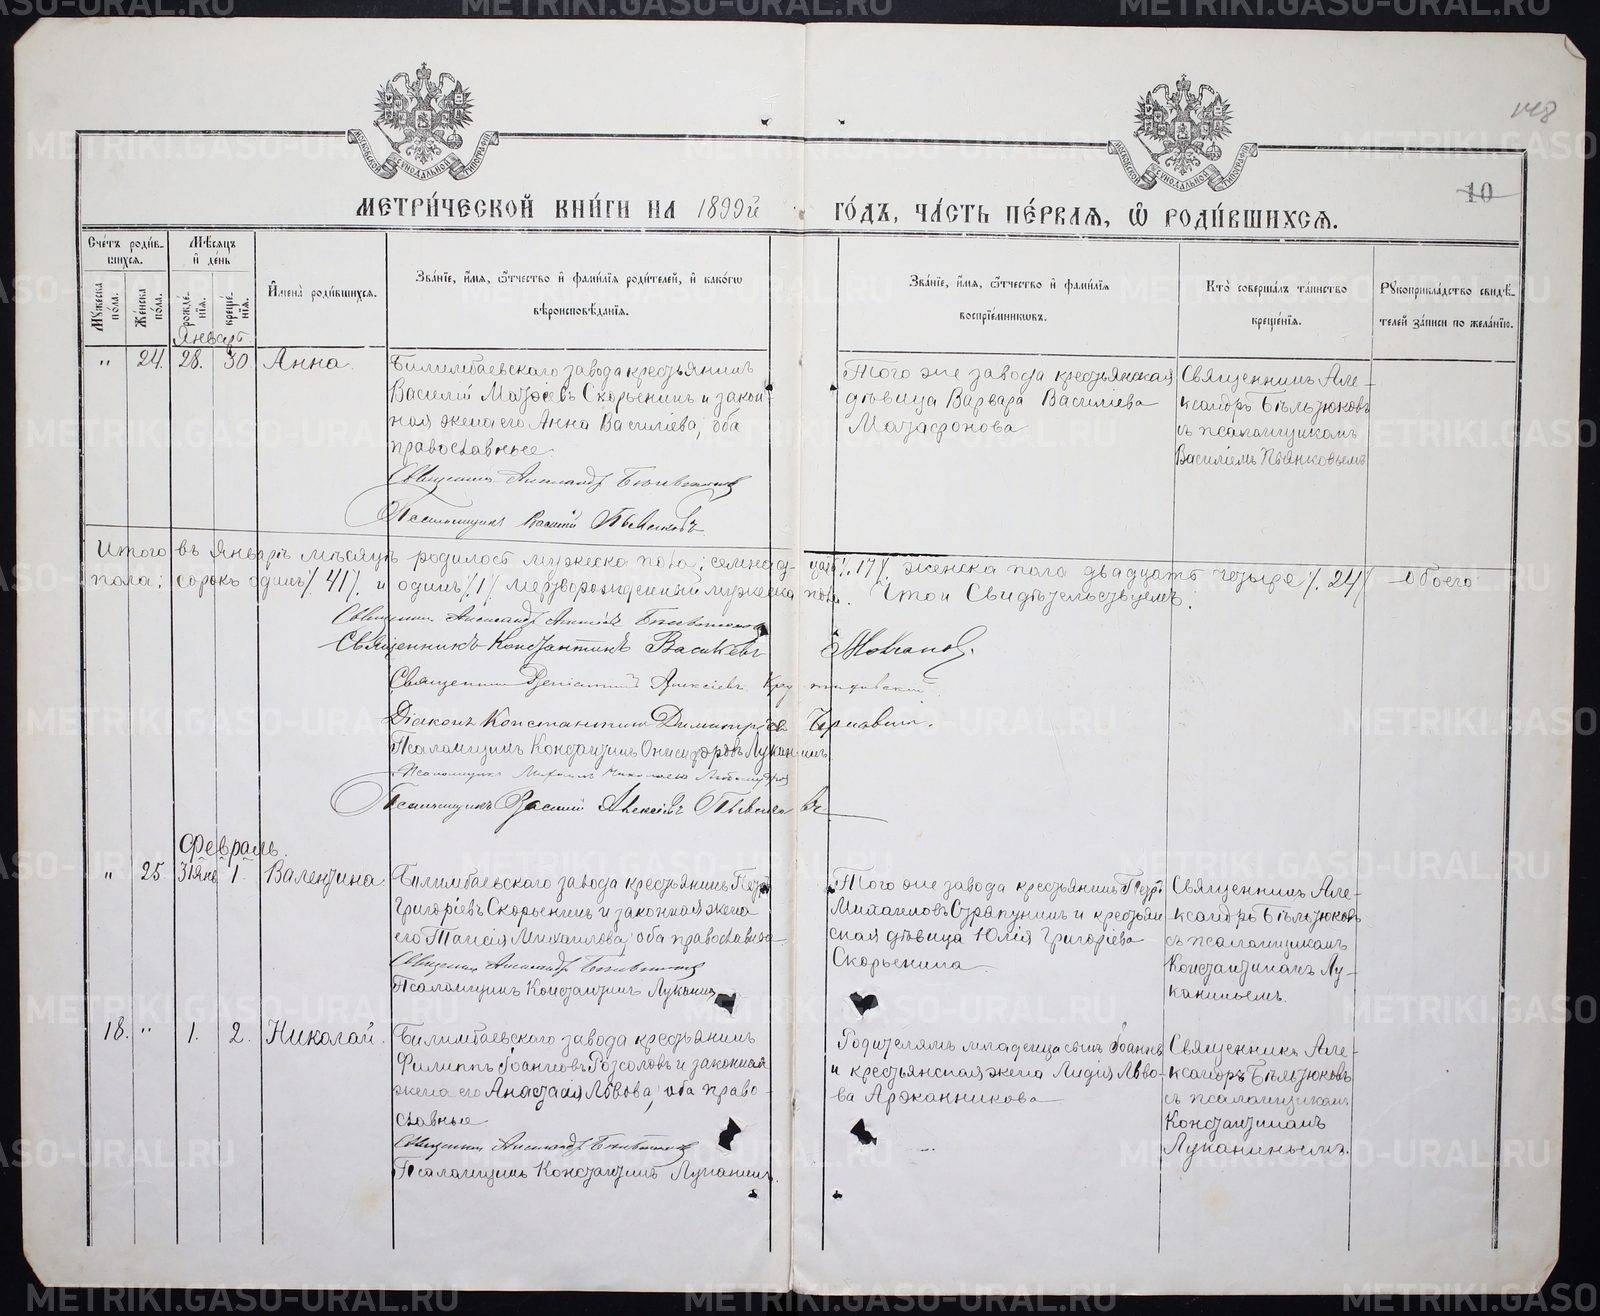 148
10
МОСКОВСКОЙ СѴНОДАЛЬНОЙ ТИПОГРАФІИ
МОСКОВСКОЙ СѴНОДАЛЬНОЙ ТИПОГРАФІИ
МЕТРИ́ЧЕСКОЙ КНИ́ГИ НА 1899й ГО́ДЪ, ЧА́СТЬ ПЕ́РВАѦ, Ѡ҆ РОДИ́ВШИХСѦ.
Сче́тъ роди́в-
шихсѧ.
Мꙋ́жеска по́ла.
Же́нска по́ла.
Мѣ́сѧцъ и҆ де́нь
рожде́-нїѧ.
креще́-нїѧ.
И҆мена̀ роди́вшихсѧ.
Зва́нїе, и҆́мѧ, ѻ҆́тчество и҆ фамѝлїѧ роди́телей, и҆ како́гѡ
вѣроисповѣ́данїѧ.
Зва́нїе, и҆́мѧ, ѻ҆́тчество и҆ фамѝлїѧ
воспрїе́мникѡвъ.
Кто̀ соверша́лъ та́инство
креще́нїѧ.
Рꙋкоприкла́дство свидѣ́-
телей за́писи по жела́нїю.
Январь
" 24. 28. 30. Анна.
Билимбаевскаго завода крестьянинъ
Василій Матѳѣевъ Скорынинъ и закон-
ная жена его Анна Василіева, оба
православные.
Священникъ Александръ Бѣльтюковъ
Псаломщикъ Василій Пьянковъ
Того же завода крестьянская
дѣвица Варвара Василіева
Матафонова
Священникъ Але-
ксандръ Бѣльтюковъ
съ псаломщикомъ
Василіемъ Пьянковымъ
Итого въ Январѣ мѣсяцѣ родилось мужеска пола: семнад-цать /.17/. женска пола двадцать четыре /.24/ обоего
пола: сорокъ одинъ /.41/. и одинъ /.1/. мертворожденный мужеска пола. Что и Свидѣтельствуемъ:
Священникъ Александръ Бѣльтюковъ
Священникъ Константинъ Васильевъ
Священникъ Алексіевъ
Діаконъ Константинъ Димитріев
Псаломщикъ Константинъ Луканинъ
Псаломщикъ Михаилъ
Псаломщикъ Василій Алексіевъ Пьянковъ
Февраль.
" 25 31 Янв 1. Валентина
Билимбаевскаго завода крестьянинъ Петръ
Григоріевъ Скорынинъ и законная жена
его Таисія Михаилова, оба православные
Священникъ Александръ Бѣльтюковъ
Псаломщикъ Константинъ Луканинъ
Того же завода крестьянинъ Петръ
Михаиловъ Стряпунинъ и крестьян
ская дѣвица Юлія Григоріева
Скорынина
Священникъ Але-
ксандръ Бѣльтюковъ
съ псаломщикомъ
Константиномъ Лу-
канинымъ.
18. " 1. 2. Николай.
Билимбаевскаго завода крестьянинъ
Филиппъ Іоанновъ и законная
жена его Анастасія Львова, оба право-
славные
Священникъ Александръ Бѣльтюковъ
Псаломщикъ Константинъ Луканинъ.
Родителямъ младенца сынъ Іоаннъ
и крестьянская жена Лидія Льво-
ва Аржанникова
Священникъ Але-
ксандръ Бѣльтюковъ
съ псаломщикомъ
Константиномъ
Луканинымъ.
METRIKI.GASO-URAL.RU